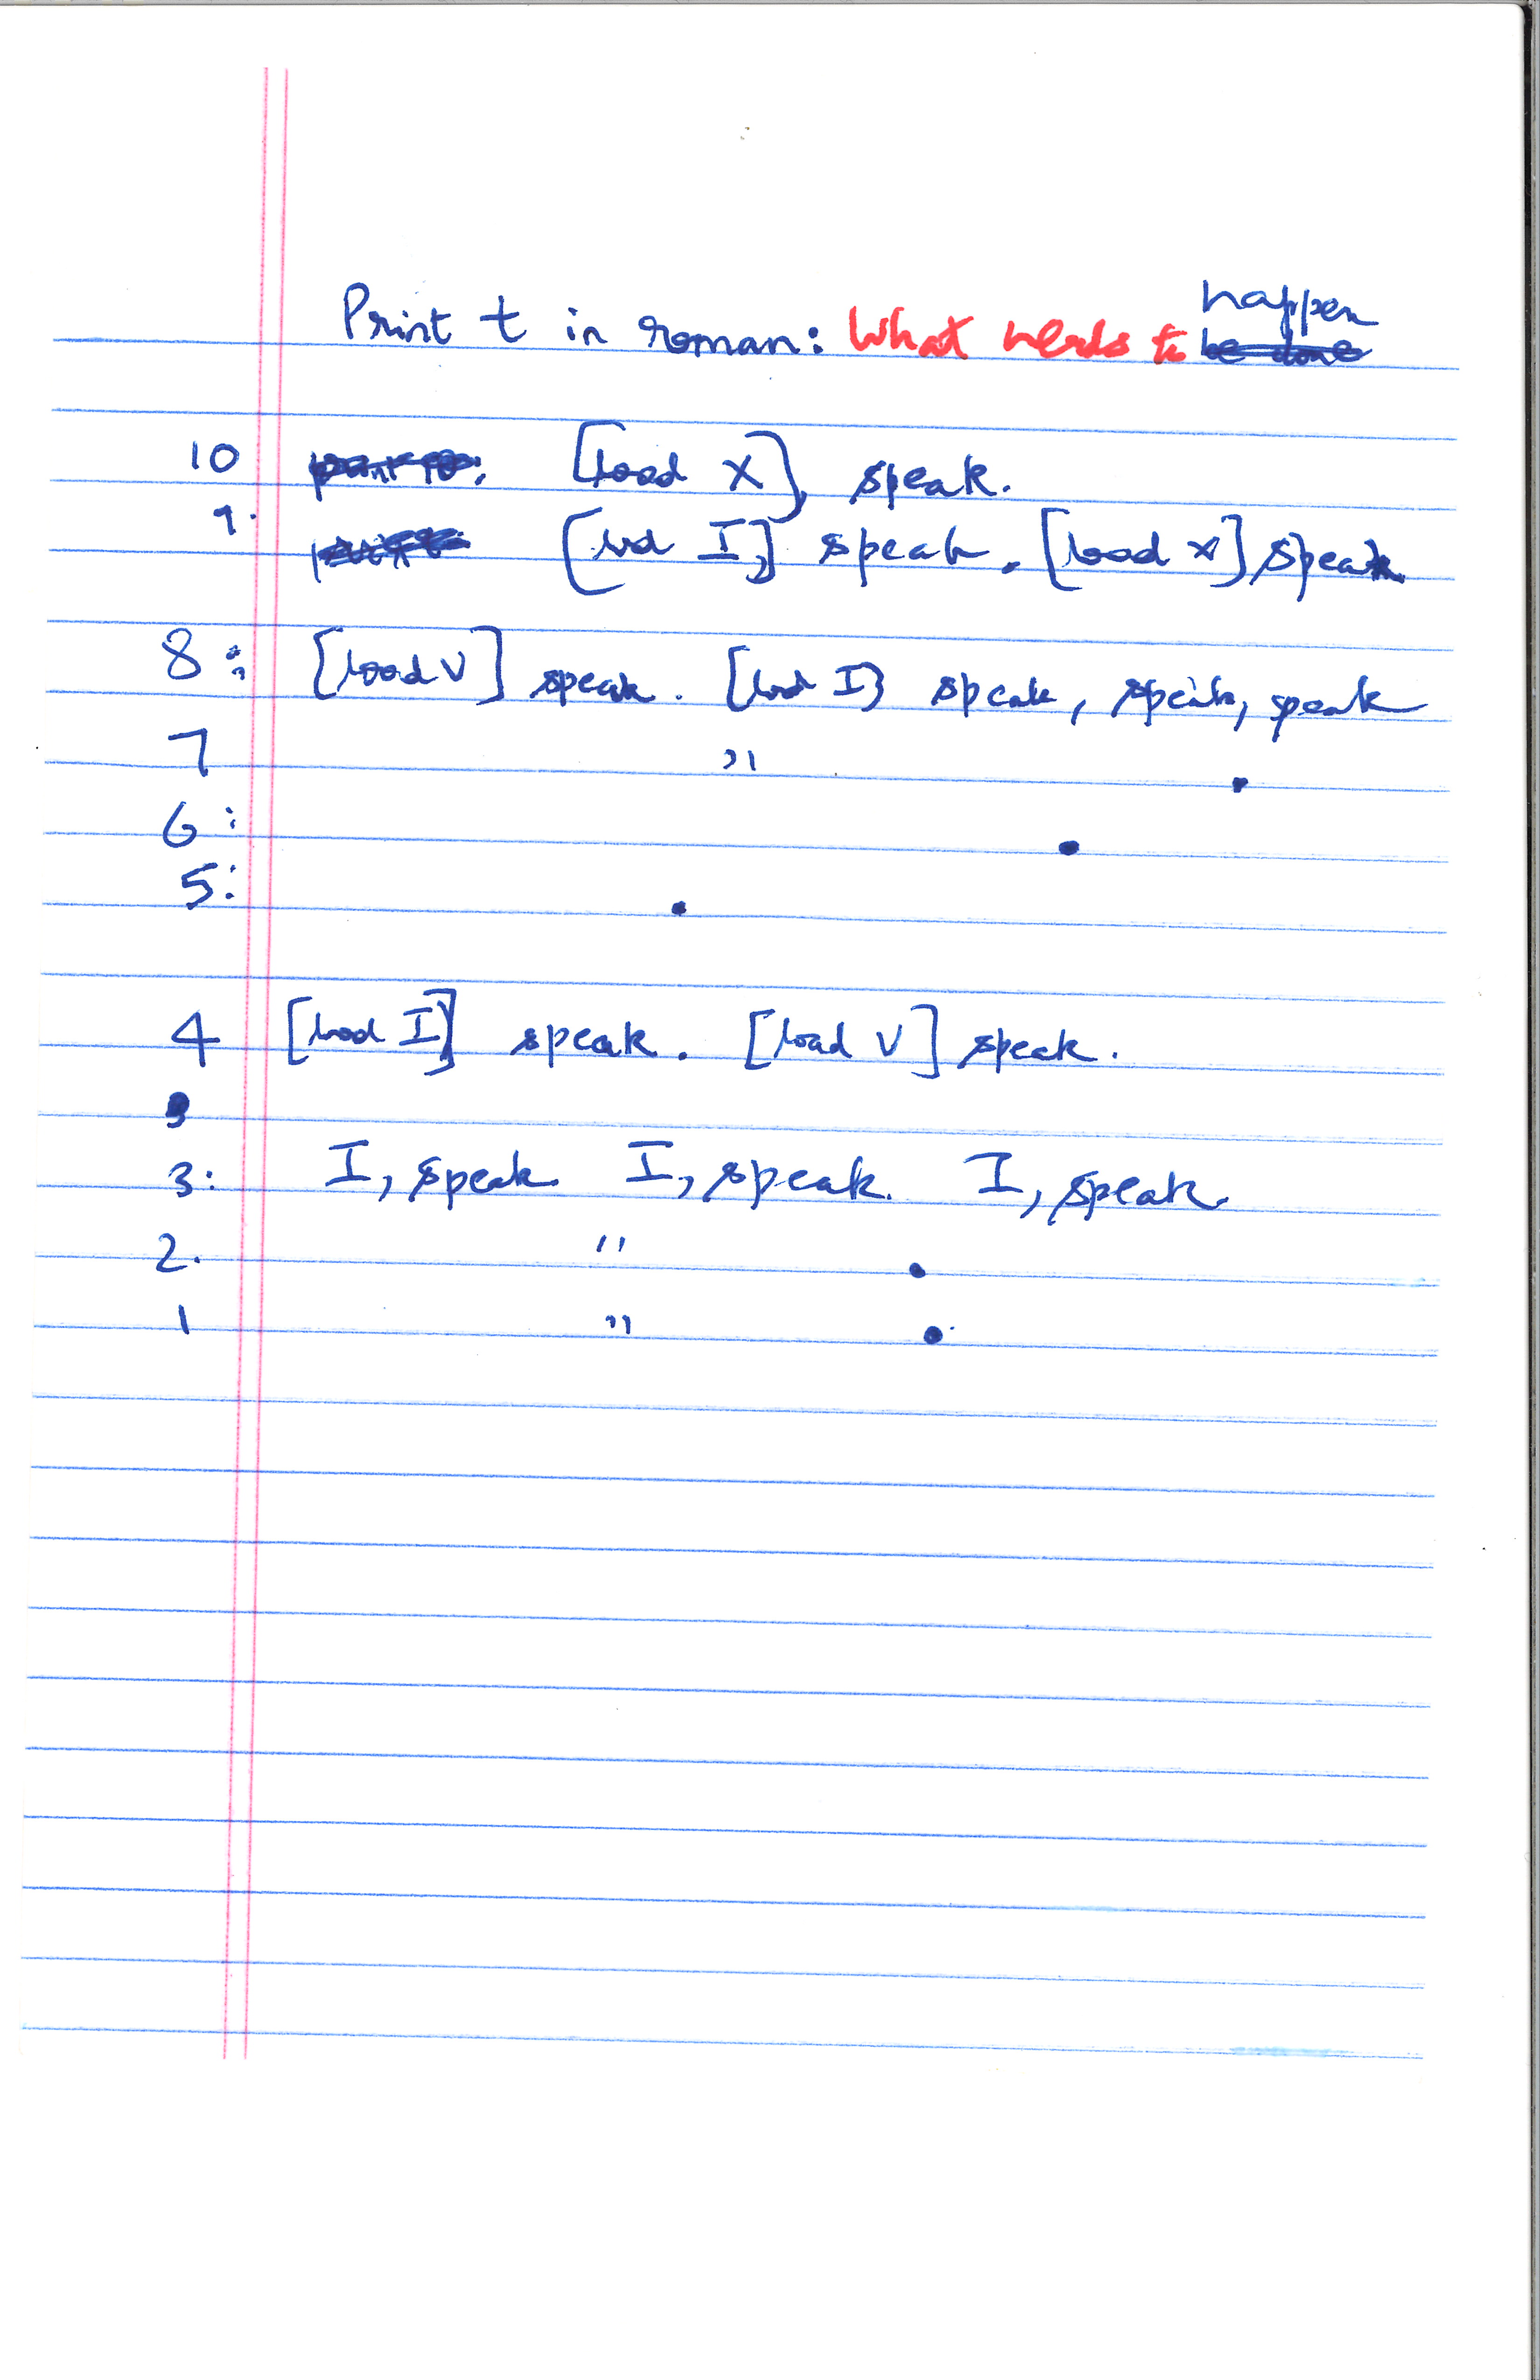 happen
Print t in roman: What needs to be done
10 [load X], speak.
9. [load I,] speak. [load X] speak
8: [load V] speak. [load I] speak, speak, speak
7 " .
6: .
5: .
4 [load I] speak. [load V] speak.
3: I, speak I, speak. I, speak.
2. " .
1 " .